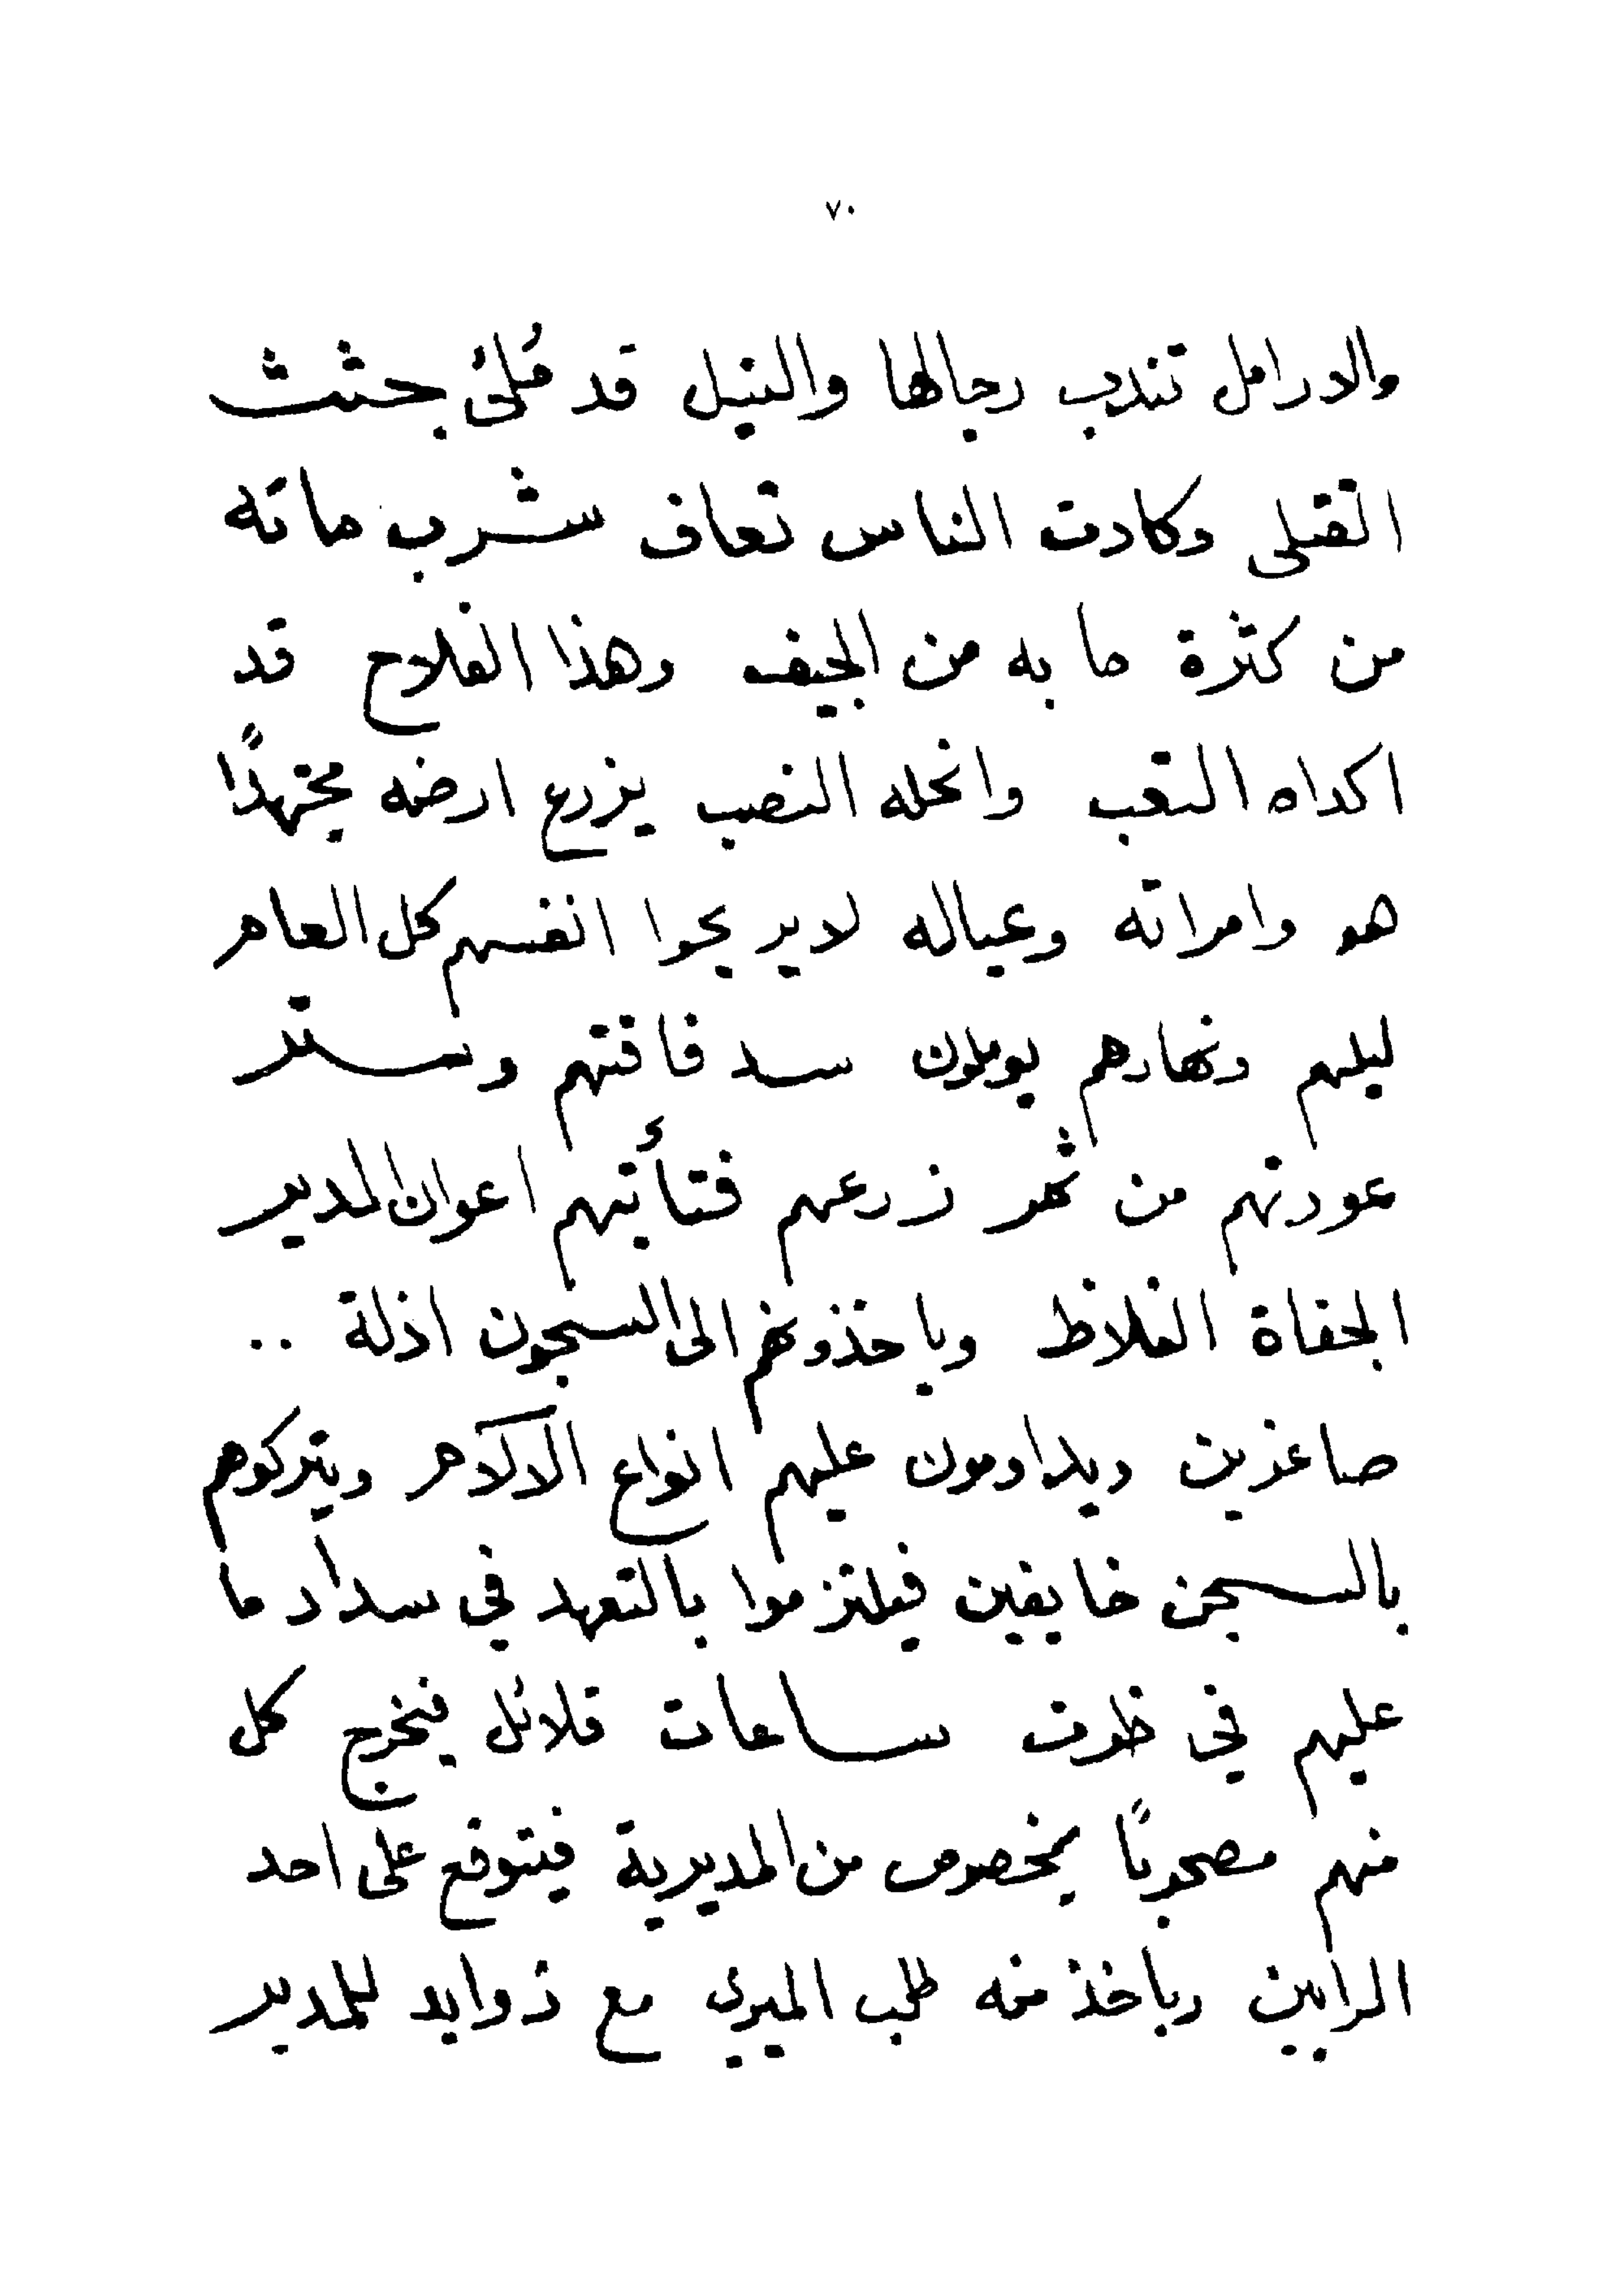 ٧٠
والارامل تندب رجالها والنيل قد مُلئَ بجثث
القتلى وكادت الناس تعاف شرب مائه
من كثرة ما به من الجيف وهذا الفلاح قد
اكداه التعب وانحله النصب يزرع ارضه مجتهدًا
هو وامراته وعياله لا يريحوا انفسهم كل العام
ليلهم ونهارهم يوملون سد فاقتهم وستر
عورتهم من ثمر زرعهم فتأتيهم اعوان المدير
الجفاة الغلاظ وياخذونهم الى السجون اذلة ..
صاغرين ويداومون عليهم انواع الالام ويتركوهم
بالسجن خايفين فيلتزموا بالتعهد في سداد ما
عليهم في ظرف ساعات قلائل فيخرج كل
منهم مصحوبًا بمخصوص من المديرية فيتوقع على احد
المرابين وياخذ منه طلب الميري مع زوايد للمدير